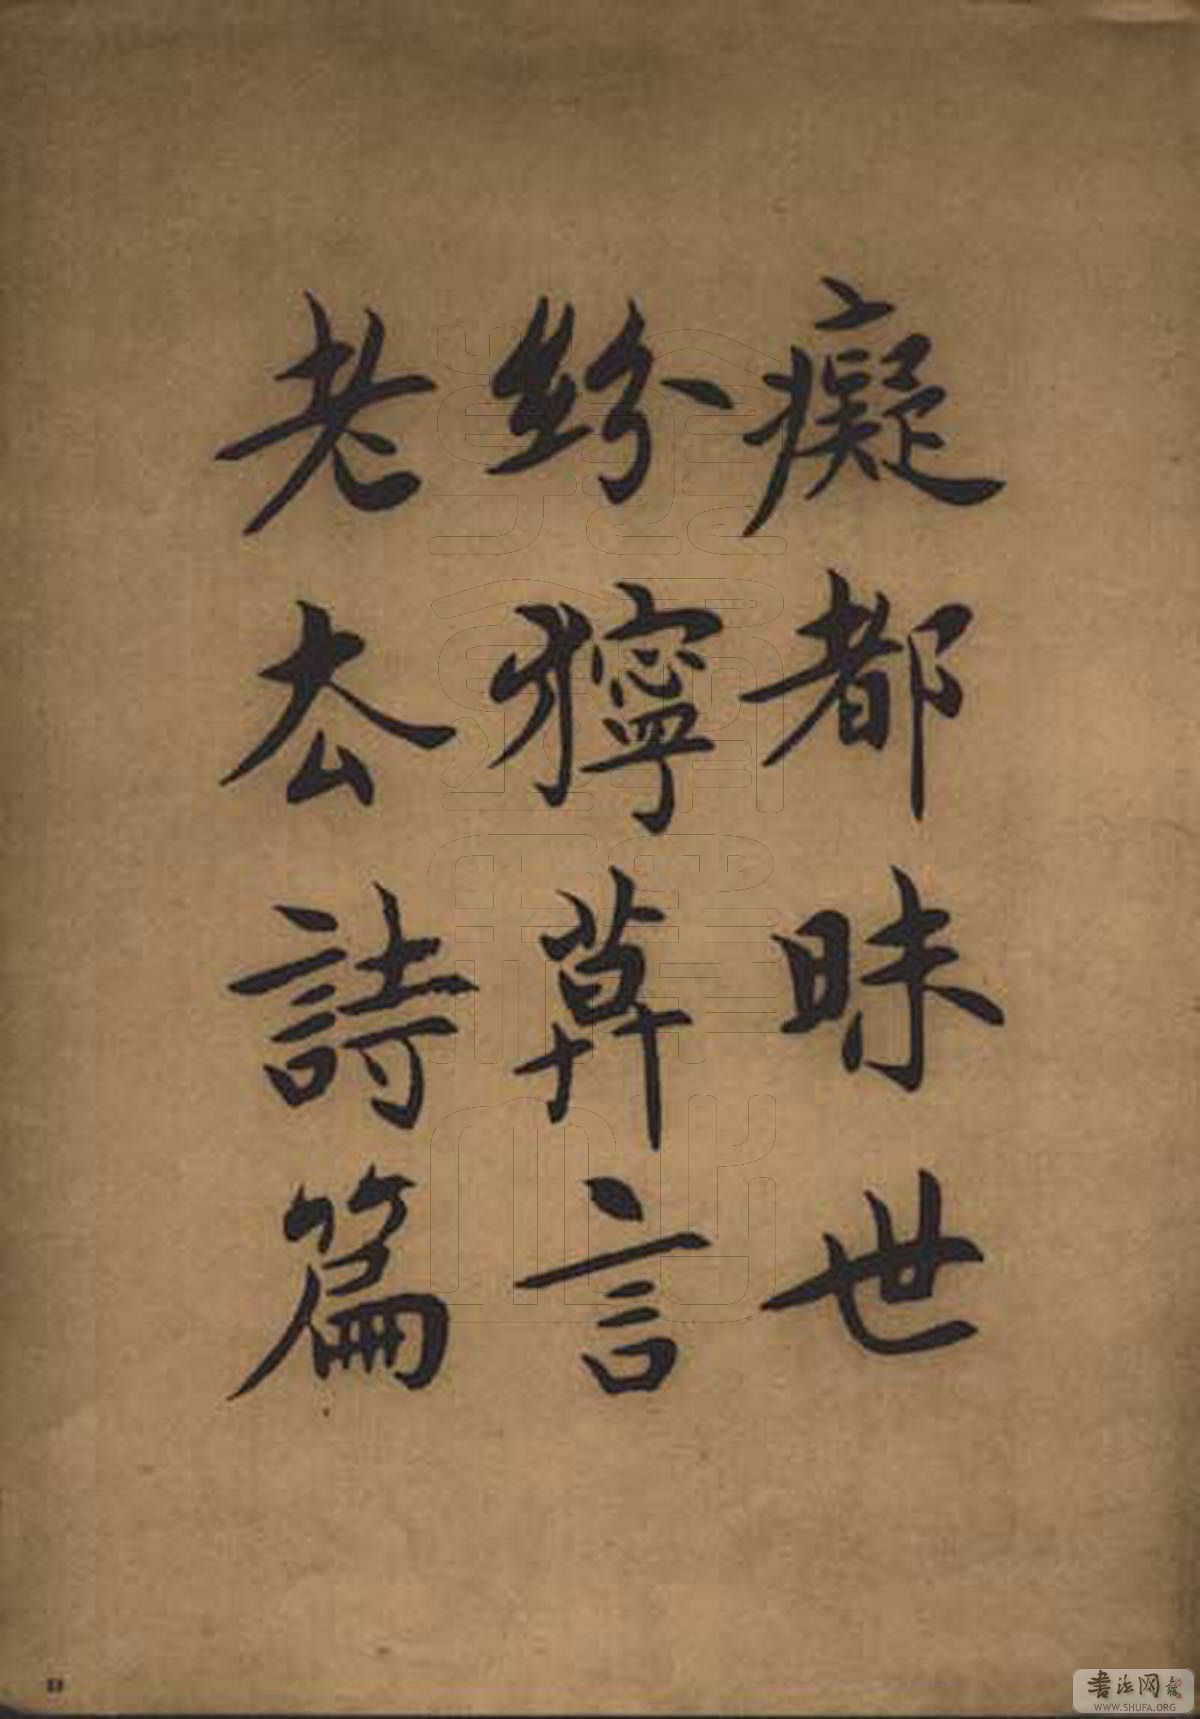 癡都昧世
紛獰算言
老去詩篇
書法网
WWW.SHUFA.ORG